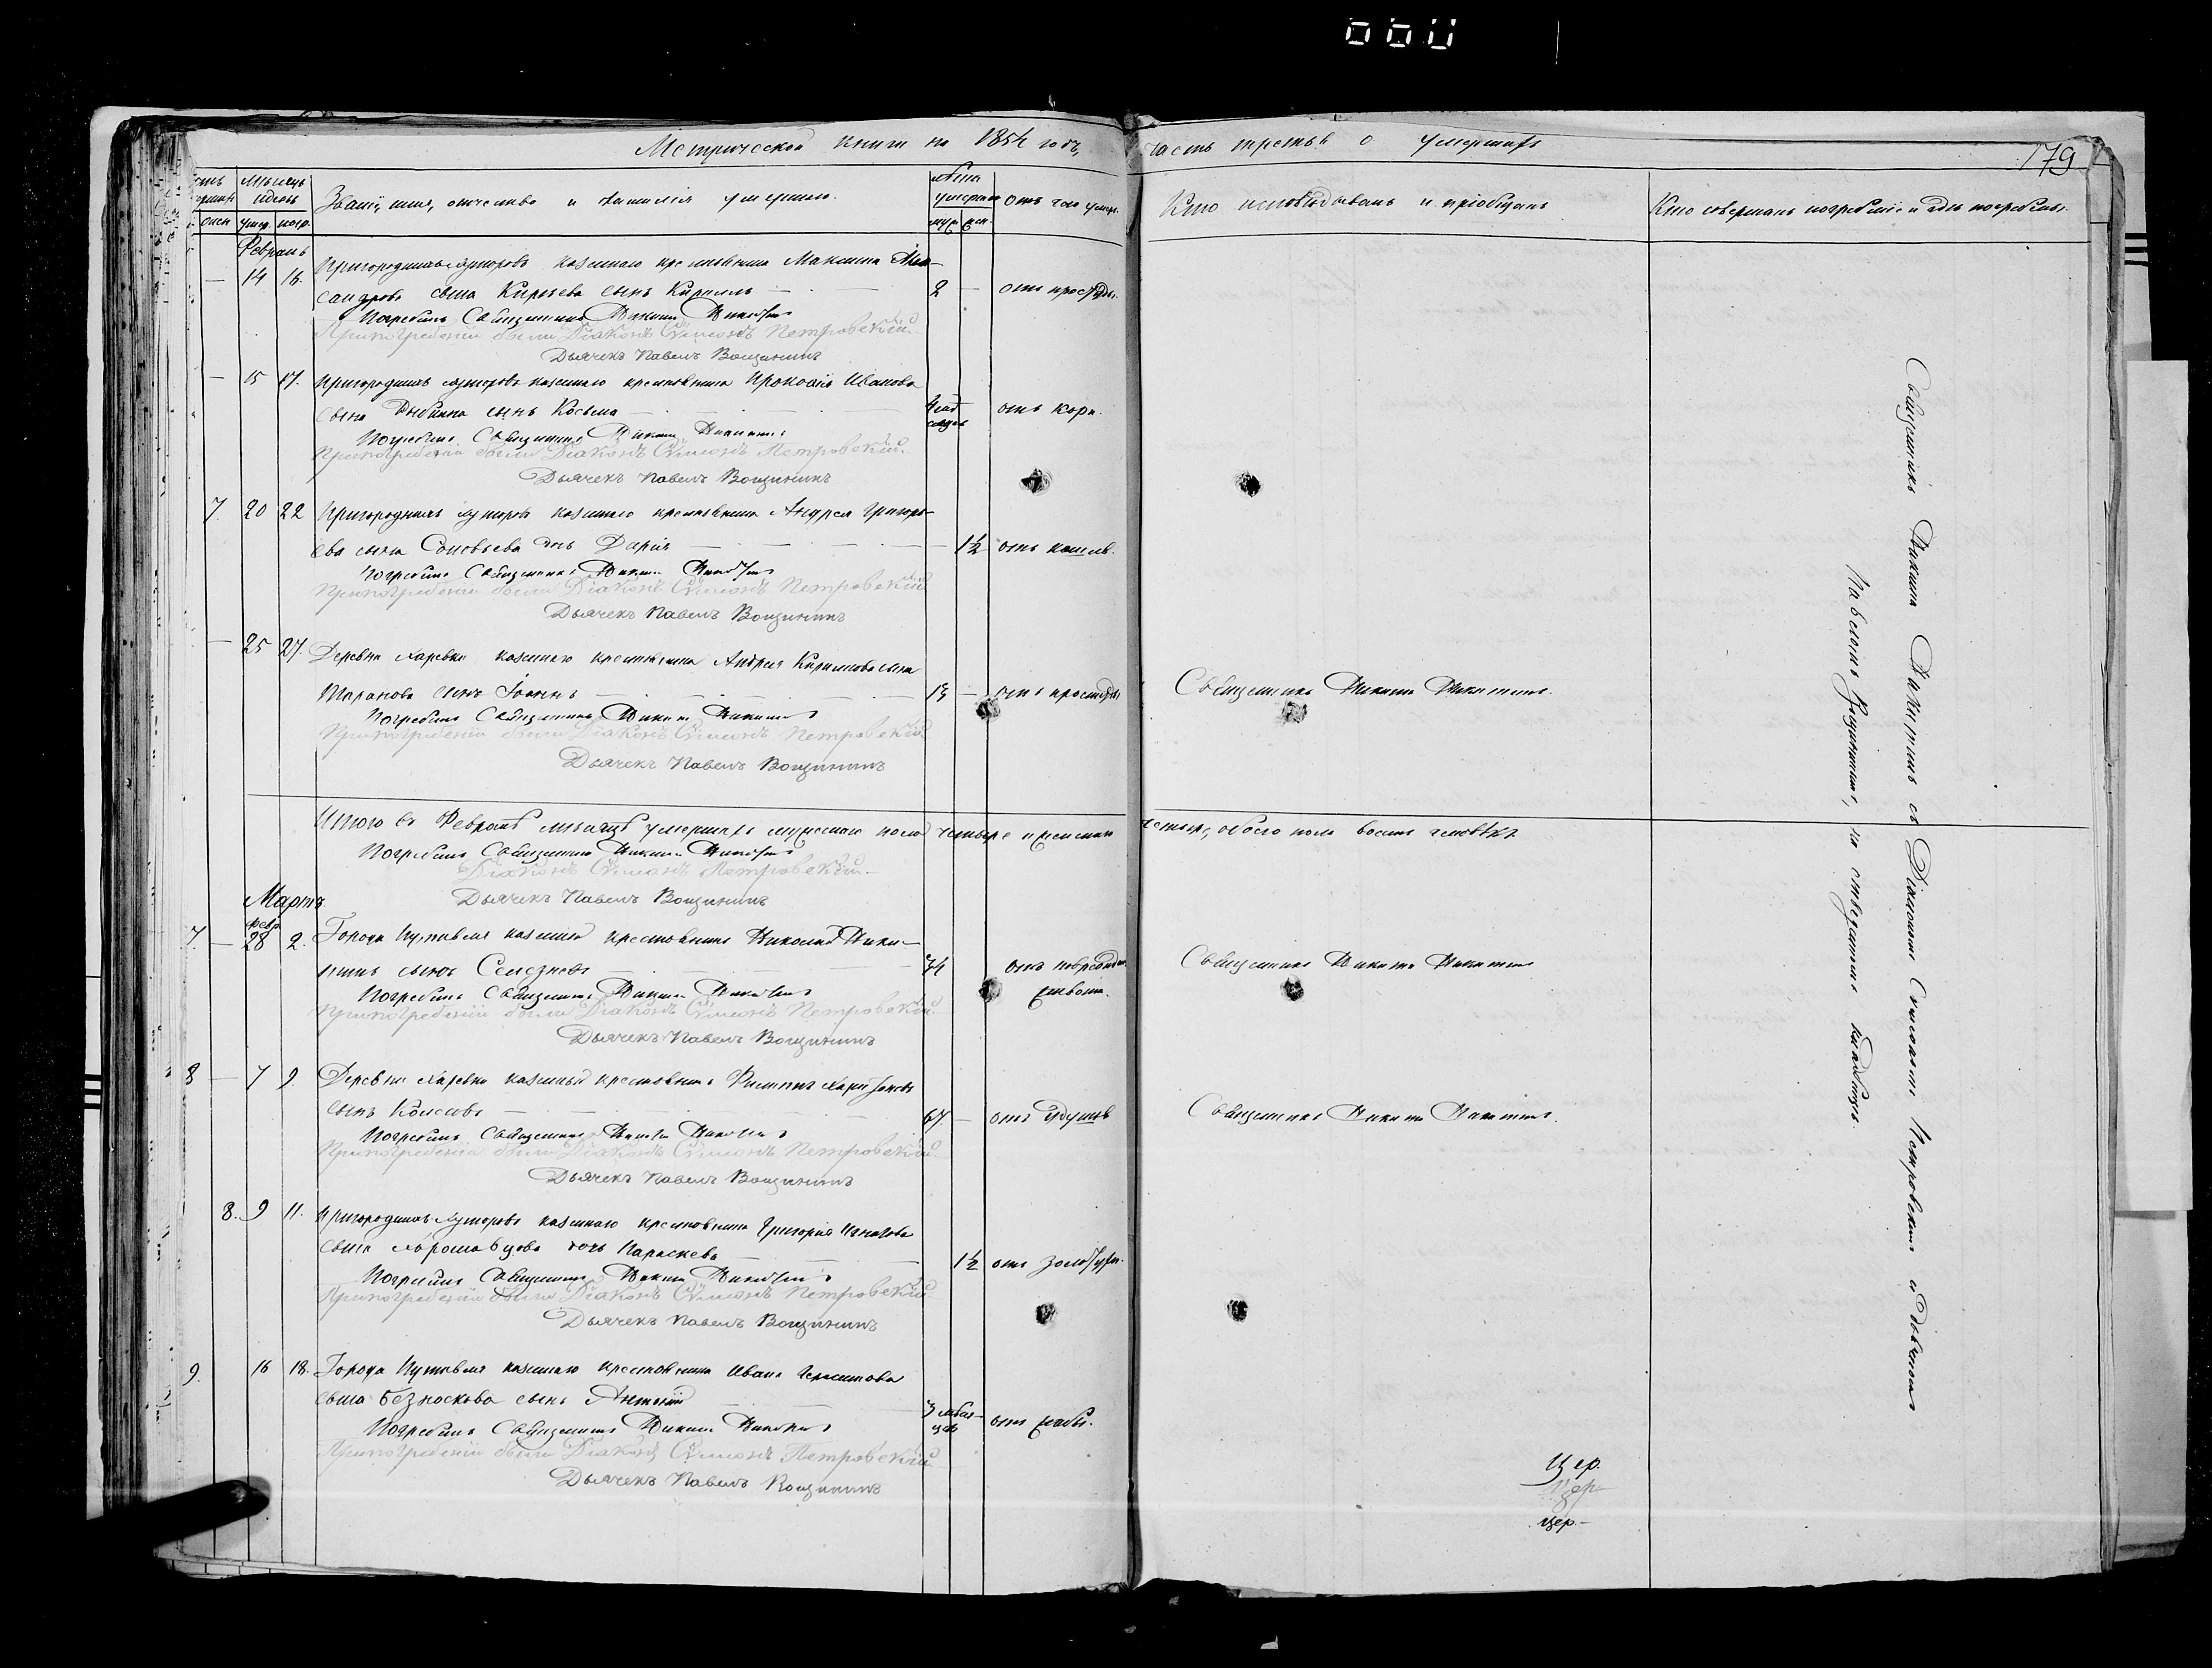 Метрической книги на 1854 годъ, часть третья о умершихъ
179
Мѣсяцъ и день
Званіе, имя, отчество и фамилія умершаго.
Лѣта умершаго
Отъ чего умеръ.
Кто исповѣдывалъ и пріобщалъ
Кто совершалъ погребеніе и гдѣ погребены.
умер. погр.
муж. жен.
Февраль
— 14 16. Пригородныхъ хуторовъ казеннаго крестьянина Максима Алек-
сандрова сына Кирѣева сынъ Кириллъ — 2 — отъ простуды.
Погребалъ Священникъ Никита Никитинъ
При погребеніи были Діаконъ Симеонъ Петровскій.
Дьячекъ Павелъ Вощининъ
— 15 17. Пригородныхъ хуторовъ казеннаго крестьянина Прокофія Иванова
сына сынъ Косьма — отъ кори.
Погребалъ Священникъ Никита Никитинъ
При погребеніи были Діаконъ Симеонъ Петровскій.
Дьячекъ Павелъ Вощининъ
7. 20 22 Пригородныхъ хуторовъ казеннаго крестьянина Андрея Григорь-
ева сына Соловьева дочь Дарія — 1½ отъ кашля.
Погребалъ Священникъ Никита Никитинъ
При погребеніи были Діаконъ Симеонъ Петровскій
Дьячекъ Павелъ Вощининъ
— 25 27. Деревни Харевки казеннаго крестьянина Андрея Кирилова сына
Шаранова сынъ Іоаннъ — 13 — отъ простуды Священникъ Никита Никитинъ.
Погребалъ Священникъ Никита Никитинъ
При погребеніи были Діаконъ Симеонъ Петровскій
Дьячекъ Павелъ Вощининъ
Итого въ Февралѣ мѣсяцѣ умершихъ мужескаго пола четыре и женскаго четыре, обоего пола восемь человѣкъ.
Погребалъ Священникъ Никита Никитинъ
Діаконъ Симеонъ Петровскій.
Дьячекъ Павелъ Вощининъ
Мартъ
7. — Февр. 28 2. Города Путивля казенный крестьянинъ Николай Ники-
тинъ сынъ Селезневъ — 74 отъ поврежден. Священникъ Никита Никитинъ
живота.
Погребалъ Священникъ Никита Никитинъ
При погребеніи были Діаконъ Симеонъ Петровскій.
Дьячекъ Павелъ Вощининъ
8 — 7 9. Деревни Харевки казенный крестьянинъ Филиппъ Харитоновъ
сынъ Колесовъ — 67. — отъ удушья Священникъ Никита Никитинъ.
Погребалъ Священникъ Никита Никитинъ
При погребеніи были Діаконъ Симеонъ Петровскій
Дьячекъ Павелъ Вощининъ
8. 9 11. Пригородныхъ хуторовъ казеннаго крестьянина Григорія Игнатова
сына дочь Параскева — 1½ отъ золотухи.
Погребалъ Священникъ Никита Никитинъ
При погребеніи были Діаконъ Симеонъ Петровскій.
Дьячекъ Павелъ Вощининъ
9. 16 18. Города Путивля казеннаго крестьянина Ивана Герасимова
сына Безноскова сынъ Антоній — 3 мѣся-
цевъ отъ жабы.
Погребалъ Священникъ Никита Никитинъ
При погребеніи были Діаконъ Симеонъ Петровскій.
Дьячекъ Павелъ Вощининъ
Священникъ Никита Никитинъ съ Діакономъ Симеономъ Петровскимъ и Дьячкомъ
Павломъ Вощининымъ, на отведенномъ кладбищѣ.
Цер.
Цер.
цер.—